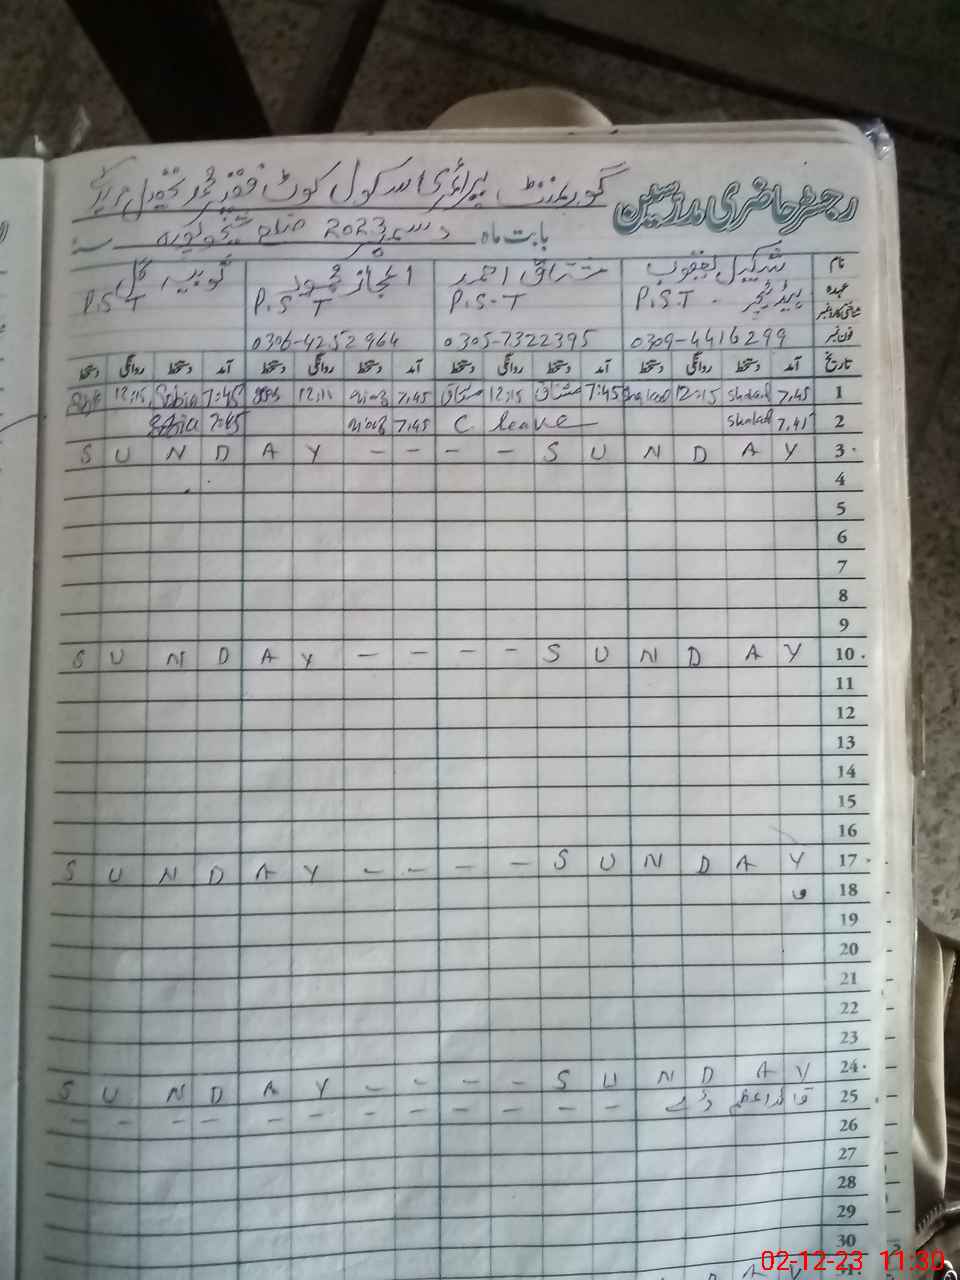 رجسٹر حاضری مدرسین گورنمنٹ پرائمری سکول کوٹ فقیر محمد تحصیل مریدکے
بابت ماہ دسمبر 2023 ضلع شیخوپورہ سنہ
نام شکیل یعقوب مشتاق احمد اعجاز محمود ثوبیہ گل
عہدہ ہیڈ ٹیچر P.S.T - P.S-T P.S T P.S T
شناختی کارڈ نمبر
فون نمبر 0309-4416299 0305-7322395 0306-4252964
تاریخ آمد دستخط روانگی دستخط آمد دستخط روانگی دستخط آمد دستخط روانگی دستخط آمد دستخط روانگی دستخط
1 7.45 Shakeel 12:15 Shakeel 7:45 مشتاق 12:15 مشتاق 7.45 12:15 7:45 Sobia 12:15
2 7.45 Shakeel C. leave 7.45 7:45 Sobia
S U N D A Y - - - - S U N D A Y 3
4
5
6
7
8
9
S U N D A Y - - - - S U N D A Y 10
11
12
13
14
15
16
S U N D A Y - - - - S U N D A Y 17
18 ق
19
20
21
22
23
S U N D A Y - - - - S U N D A Y 24
25 قائداعظم ڈے - - - - - - - - - - - -
26
27
28
29
30
31 Y A D
02-12-23 11:30